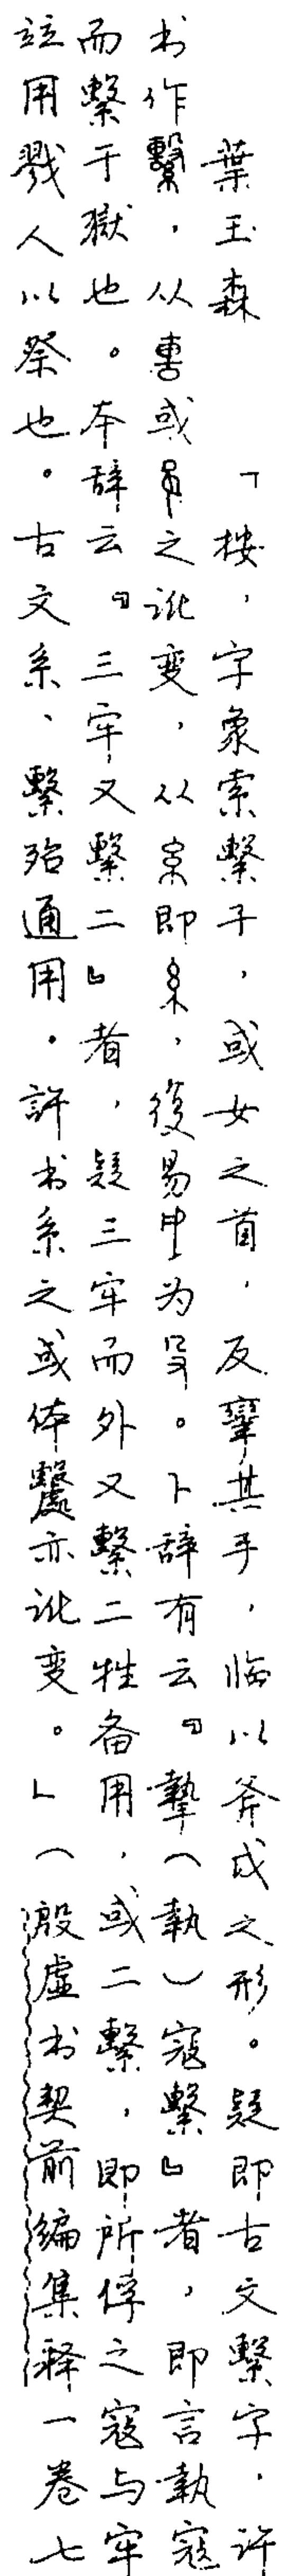 葉玉森「桉，字象索繫子，或女之首，反㪺其手，临以斧戉之形。疑即古文繫字，许
书作繫，从軎或之讹变，从糸即糸，復易为殳。卜辞有云『摯（執）寇繫』者，即言執寇
而繫于獄也。本辞云『三牢又繫二』者，疑三牢而外又繫二牲备用，或二繫，即所俘之寇与牢
竝用戮人以祭也。古文系、繫殆通用。許书系之或体亦讹变。」（殷虚书契前编集释一卷七